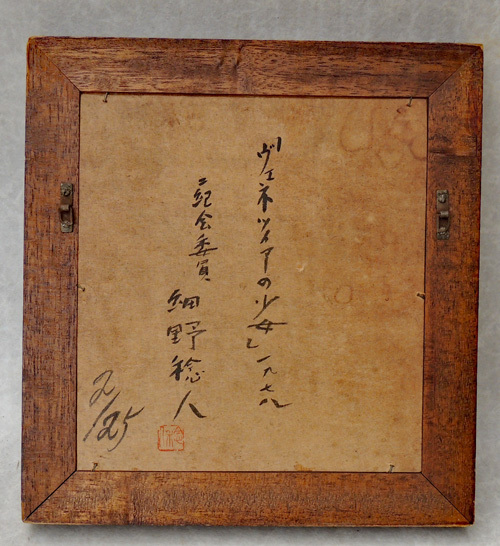 「ヴェネツィアの少女」一九七八
二紀会委員 細野稔人
2/125